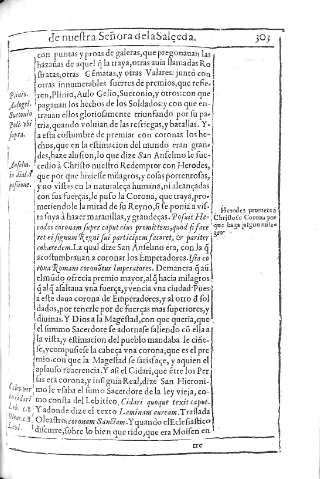 de nuestra Señora de la Salceda. 303
con puntas y proas de galeras, que pregonauan las
hazañas de aquel q̃ la traya, otras auia llamadas Ro
stratas, otras y otras Valares: junto con
otras innumerables suertes de premios, que refie-
ren, Plinio, Aulo Gelio, Suetonio, y otros: con que
pagauan los hechos de los Soldados: y con que en-
trauan ellos gloriosamente triunfando por su pa-
tria, quando voluian de las refriegas, y batallas. Y
a esta costumbre de premiar con coronas los he-
chos, que en la estimacion del mundo eran gran-
des, haze alusion, lo que dize San Anselmo le suc-
cedio à Christo nuestro Redemptor con Herodes,
que por que hiziesse milagros, y cosas portentosas,
y no vistas en la naturaleza humana, ni alcançadas
con sus fuerças, le puso la Corona, que traya, pro-
metiendole la mitad de su Reyno, si se ponia a vis-
ta suya à hazer marauillas, y grandeças. Posuit He-
rodes coronam super caput eius promittens, quod si face
ret ei signum Regni sui participem faceret, & pariter
obedirent. La qual dize San Anselmo era, con la q̃
acostumbrauan a coronar los Emperadores. Ista co
rona Romani coronãtur Imperatores. De manera q̃ aũ
el mũdo ofrecia premio mayor, al q̃ hazia milagros
q̃ al q̃ assaltaua vna fuerça, y vencia vna ciudad. Pues
a este daua corona de Emperadores, y al otro d sol
dados, por tenerle por de fuerças mas superiores, y
diuinas. Y Dios a la Magestad, con que queria, que
el summo Sacerdote se adornasse saliendo cõ ella a
la vista, y estimacion del pueblo mandaba le ciñe-
sse, y compusiesse la cabeça vna corona, que es el pre
mio: con que la Magestad se satisfaçe, y aquien el
aplauso reuerencia. Y assi el Cidari, que ẽtre los Per
sas era corona, y insignia Real, dize San Hieroni-
mo le vsaba el sumo Sacerdote de la ley vieja, co-
mo consta del Lebitico, Cidari quoque texit caput.
Y adonde dize el texto Laminam auream. Traslada
Oleastro, coronam Sanctam. Y quando el Eclesiastico
discurre, sobre lo bien que rido, que era Moisen en
tre
Plinio.
Aulogel.
Suetonio
supra.
Anselm.
Herodes prometea
Christo su Corona por
que haga algun mila-
gro.